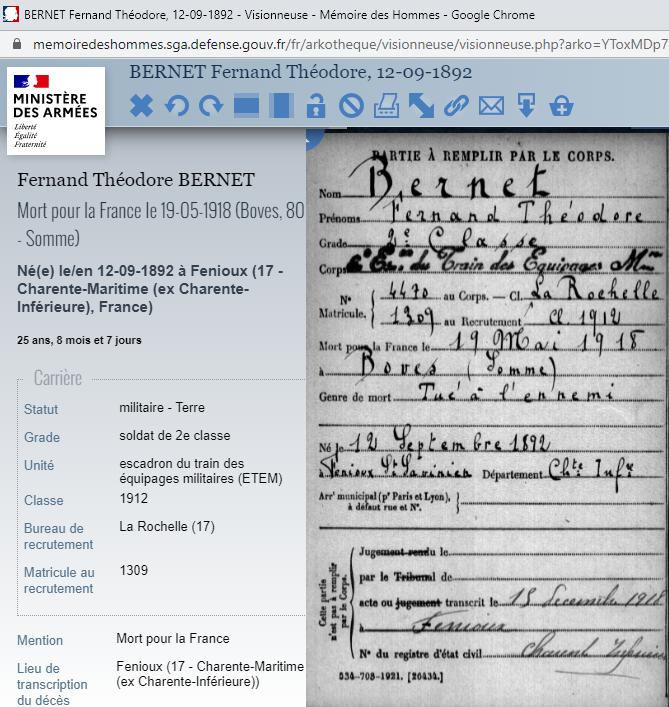 BERNET Fernand Théodore, 12-09-1892 - Visionneuse - Mémoire des Hommes - Google Chrome
memoiredeshommes.sga.defense.gouv.fr/fr/arkotheque/visionneuse/visionneuse.php?arko=YToxMDp7
BERNET Fernand Théodore, 12-09-1892
MINISTÈRE
DES ARMÉES
Liberté
Égalité
Fraternité
Fernand Théodore BERNET
Mort pour la France le 19-05-1918 (Boves, 80
- Somme)
Né(e) le/en 12-09-1892 à Fenioux (17 -
Charente-Maritime (ex Charente-
Inférieure), France)
25 ans, 8 mois et 7 jours
Carrière
Statut militaire - Terre
Grade soldat de 2e classe
Unité escadron du train des
équipages militaires (ETEM)
Classe 1912
Bureau de La Rochelle (17)
recrutement
Matricule au 1309
recrutement
Mention Mort pour la France
Lieu de Fenioux (17 - Charente-Maritime
transcription (ex Charente-Inférieure))
du décès
PARTIE À REMPLIR PAR LE CORPS.
Nom Bernet
Prénoms Fernand Théodore
Grade 2e Classe
Corps du Train des Equipages Mres
N° 4470 au Corps. — Cl. La Rochelle
Matricule. 1309 au Recrutement Cl 1912
Mort pour la France le 19 Mai 1918
à Boves (Somme)
Genre de mort Tué à l'ennemi
Né le 12 Septembre 1892
à Fenioux St Savinien Département Chte Infre
Arrt municipal (pr Paris et Lyon),
à défaut rue et N°.
Cette partie
n'est pas à remplir
par le Corps.
Jugement rendu le
par le Tribunal de
acte ou jugement transcrit le 15 Décembre 1918
à Fenioux
N° du registre d'état civil Charente Inférieure
534-708-1921. [26434.]